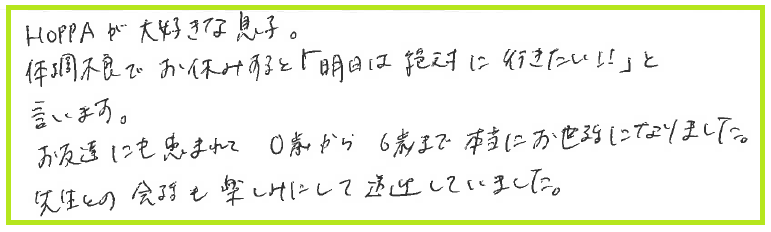 HOPPAが大好きな息子。
体調不良でお休みすると「明日は絶対に行きたい!!」と
言います。
お友達にも恵まれて 0歳から 6歳まで 本当にお世話になりました。
先生との会話も楽しみにして送迎していました。